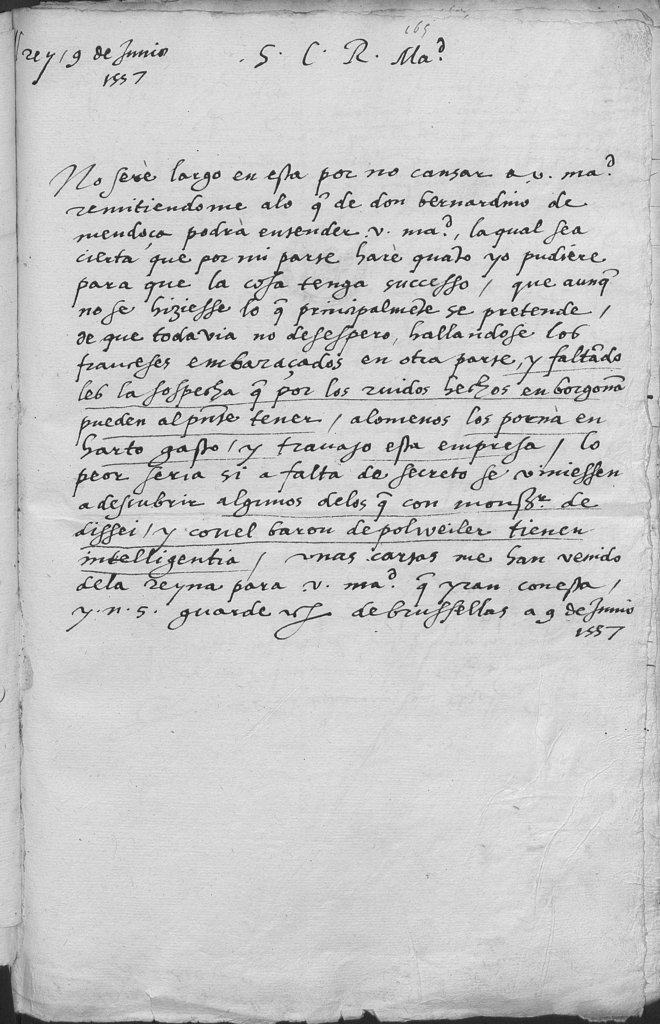 165
rey / 9 de Junio
1557
. S. C. R. Ma.d
No serè largo en esta por no cansar a v. ma.d
remitiendome alo q̃ de don bernardino de
mendoça podrà entender v. ma.d, la qual sea
cierta, que por mi parte harè quãto yo pudiere
para que la cosa tenga successo / que aunq̃
no se hiziesse lo q̃ principalmẽte se pretende /
de que todavia no desespero, hallandose los
franceses embaraçados en otra parte, y faltãdo
les la sospecha q̃ por los ruidos hechos en borgoña
pueden al pñte tener / alomenos los pornà en
harto gasto / y travajo esta empresa / lo
peor seria si a falta de secreto se viniessen
a descubrir algunos delos q̃ con monsr. de
dissei / y conel baron de polweiler tienen
intelligentia / unas cartas me han venido
dela reyna para v. ma.d q̃ yran conesta /
y. n. s. guarde de brussellas a 9 de Junio
1557